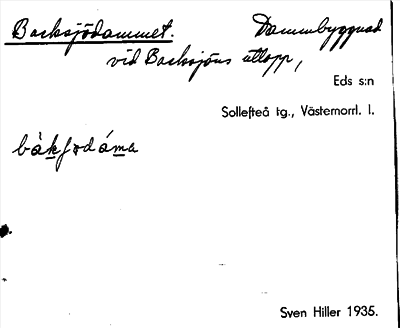 Backsjödammet. Dammbyggnad
vid Backsjöns utlopp,
Eds s:n
Sollefteå tg., Västernorrl. l.
Sven Hiller 1935.